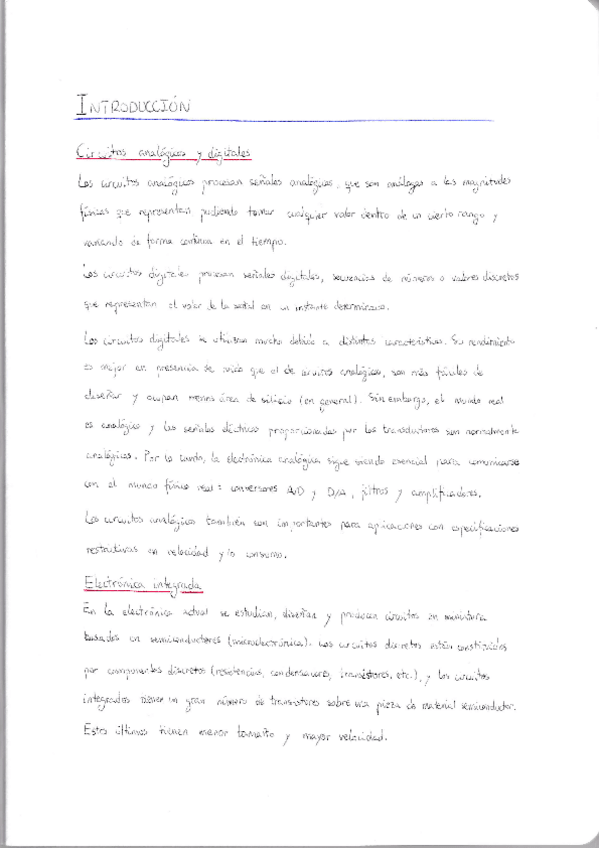 INTRODUCCIÓN
Circuitos analógicos y digitales
Los circuitos analógicos procesan señales analógicas, que son análogas a las magnitudes
físicas que representan, pudiendo tomar cualquier valor dentro de un cierto rango y
variando de forma continua en el tiempo.
Los circuitos digitales procesan señales digitales, secuencias de números o valores discretos
que representan el valor de la señal en un instante determinado.
Los circuitos digitales se utilizan mucho debido a distintas características. Su rendimiento
es mejor en presencia de ruido que el de circuitos analógicos, son más fáciles de
diseñar y ocupan menos área de silicio (en general). Sin embargo, el mundo real
es analógico y las señales eléctricas proporcionadas por los transductores son normalmente
analógicas. Por lo tanto, la electrónica analógica sigue siendo esencial para comunicarse
con el mundo físico real: conversores A/D y D/A, filtros y amplificadores.
Los circuitos analógicos también son importantes para aplicaciones con especificaciones
restrictivas en velocidad y/o consumo.
Electrónica integrada
En la electrónica actual se estudian, diseñan y producen circuitos en miniatura
basados en semiconductores (microelectrónica). Los circuitos discretos están constituidos
por componentes discretos (resistencias, condensadores, transistores, etc.), y los circuitos
integrados tienen un gran número de transistores sobre una pieza de material semiconductor.
Estos últimos tienen menor tamaño y mayor velocidad.